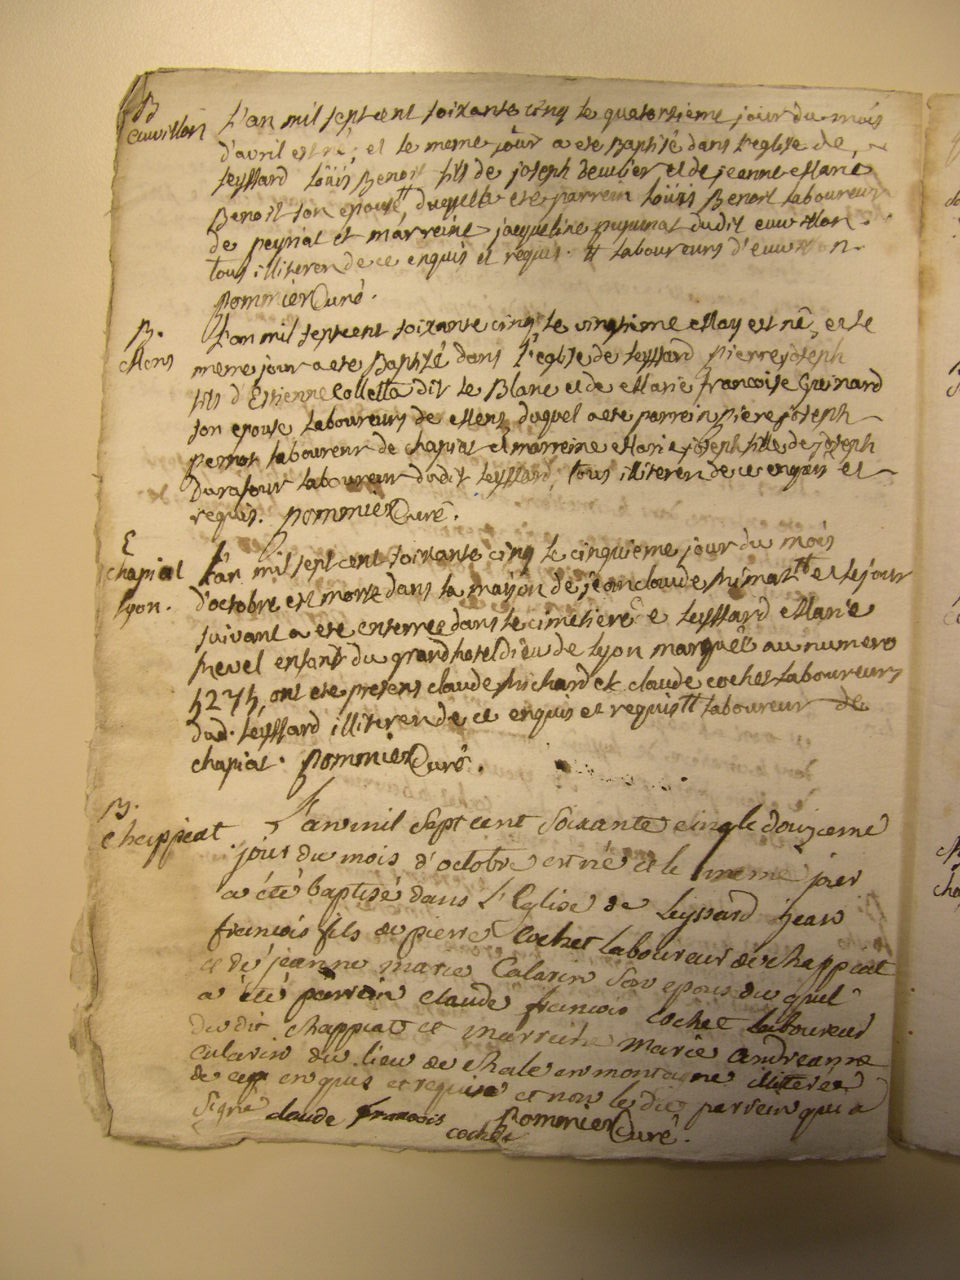 B
euvillon
L'an mil sept cent soixante cinq le quatorsieme jour du mois
d'avril est né, et le meme jour a eté Baptisé dans l'eglise de
Leyssard Loüis Benoit fils de joseph et de jeanne Marie
Benoit son epouse, duquel a eté parrein Loüis Benoit laboureur
de peyriat et marreine jacqueline dudit euvillon
tous illiteres de ce enquis et requis. # laboureurs d'euvillon
pommier Curé.
B.
Mens
L'an mil sept cent soixante cinq le vingtieme May est né, et le
meme jour a eté Baptisé dans l'eglise de Leyssard pierre joseph
fils d'Estienne Colletta dit le Blanc et de Marie francoise Guinard
son epouse laboureurs de Mens duquel a eté parrein pierre joseph
pernot laboureur de chapiat et marreine Marie joseph fille de joseph
Durafour laboureur dudit Leyssard, tous illiteres de ce enquis et
requis. pommier Curé.
E
chapiat
Lyon.
L'an mil sept cent soixante cinq le cinquieme jour du mois
d'octobre est morte dans la maison de jean claude # et le jour
suivant a eté enterrée dans le cimetiere de Leyssard Marie
enfant du grand hotel dieu de Lyon marquée au numero
5275, ont eté presens claude Michard et claude cochet laboureurs
dud. Leyssard illiteres de ce enquis et requis # laboureur de
chapiat. pommier Curé.
B.
Chappiat
L'an mil sept cent soixante cinq le douzieme
jour du mois d'octobre est né et le meme jour
a été baptisé dans L'Eglise de Leyssard jean
francois fils de pierre cochet laboureur de chappiat
et de jeanne marie Calarin son epouse du quel
a été parrein claude francois cochet laboureur
du dit chappiat et marreine marie andreanne
calarin du lieu de chale en montagne illiterée
de ce enquis et requise et non le dit parrein qui a
signé claude francois pommier Curé.
cochet